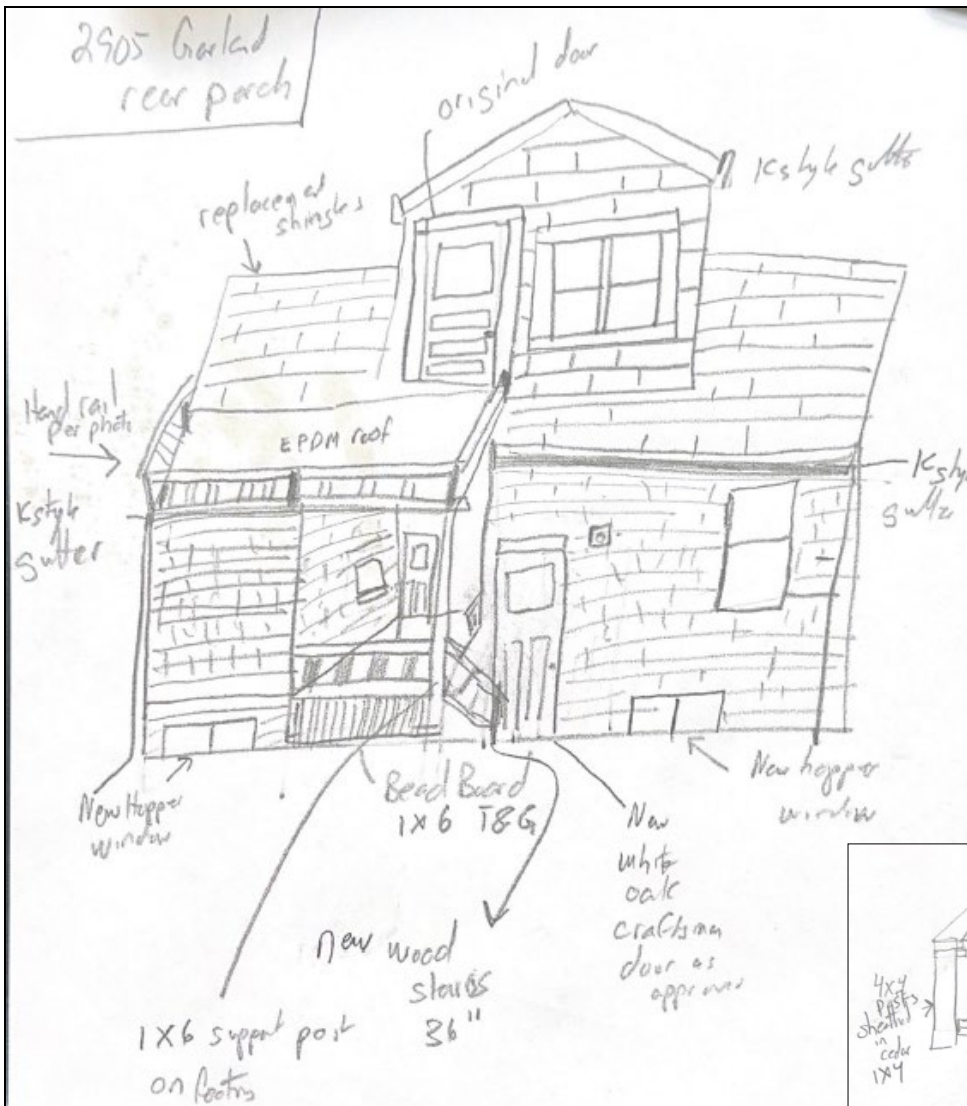 2905 Garland
rear porch
original door
K style gutter
replacement
shingles
Hand rail
per photo
EPDM roof
K style
gutter
K style
gutter
New Hopper
window
Bead Board
1X6 T&G
New
white
oak
craftsman
door as
approved
New hopper
window
new wood
stairs
36"
1X6 support post
on footing
4x4
posts
sheathed
in
cedar
1X4